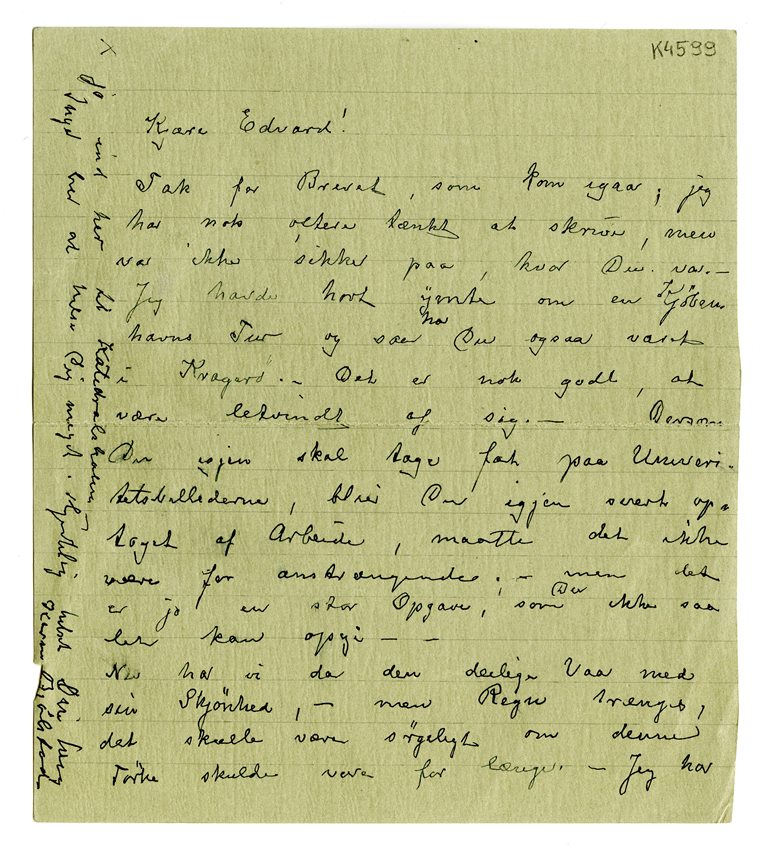 K4599
Kjære Edvard!
Tak for Brevet, som kom igaar, jeg
har nok oftere tænkt at skrive, men
var ikke sikker paa, hvor Du var. –
Jeg havde hørt ymte om en Kjöben-
havns Tur og saa har Du ogsaa været
i Kragerö. – Det er nok godt, at
være letvindt af sig. – Dersom
Du igjen skal tage fat paa Univeri-
tetsbillederne, blir Du igjen svært op-
taget af Arbeide, maatte det ikke
være for anstrængende. – men det
er jo en stor Opgave, som Du ikke saa
let kan opgi – –
Nu har vi da den deilige Vaar med
sin Skjönhed, – men Regn trænges,
det skulle være sörgeligt om denne
Törke skulde vare for længe. – Jeg har
x
jo ind her til Katedralskolen
Inger ber at hilse Dig meget. Hjertelig hilset Din
Karen Bjølstad